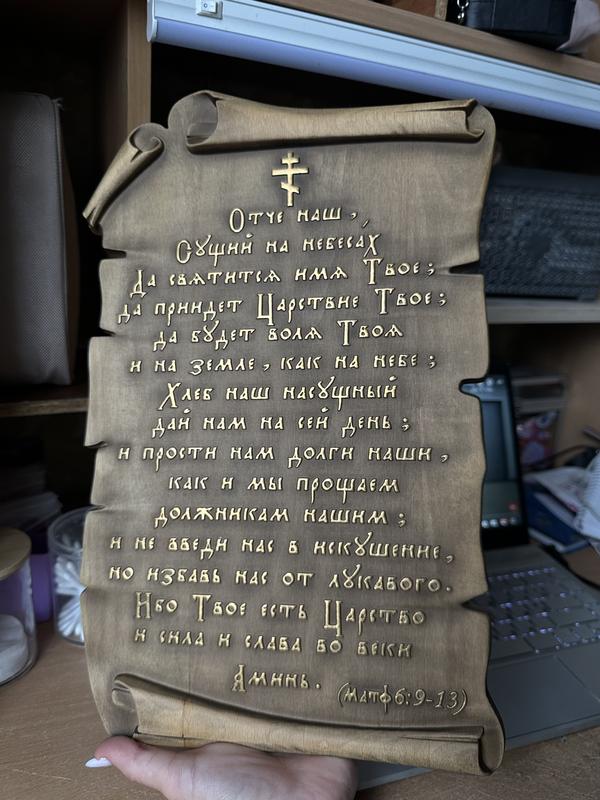 Отче наш,
Сущий на небесах
Да святится имя Твое;
да приидет Царствие Твое;
да будет воля Твоя
и на земле, как на небе;
Хлеб наш насущный
дай нам на сей день;
и прости нам долги наши,
как и мы прощаем
должникам нашим;
и не введи нас в искушение,
но избавь нас от лукавого.
Ибо Твое есть Царство
и сила и слава во веки
Аминь.
(Матф6:9-13)